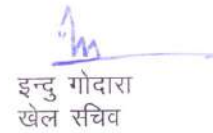 इन्दु गोदारा
खेल सचिव